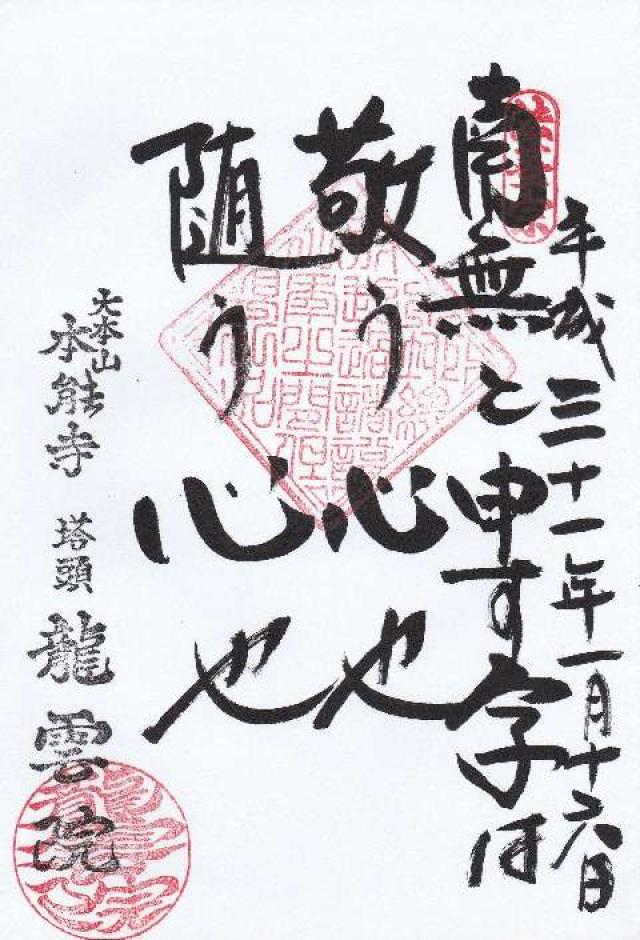 平成三十一年一月十六日
南無と申す字は
敬う心也
随う心也
大本山
本能寺 塔頭 龍雲院